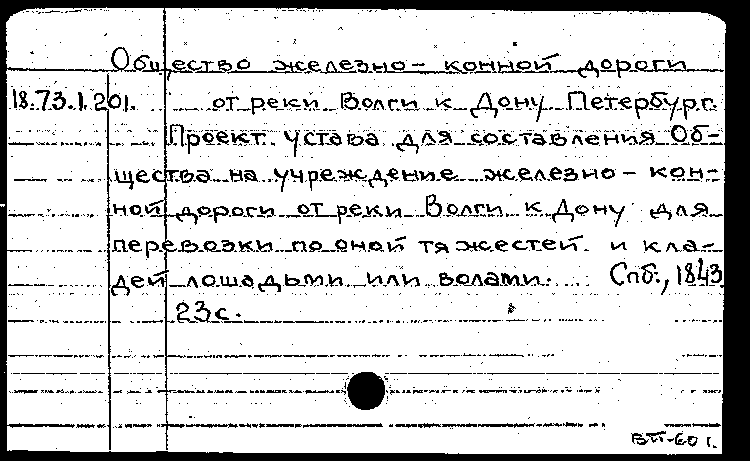 Общество железно- конной дороги
18.73.1.201. от реки Волги к Дону Петербург.
Проект устава для составления Об-
щества на учреждение железно-кон-
ной дороги от реки Волги к Дону для
перевозки по оной тяжестей и кла-
дей лошадьми или волами. Спб., 1843
23с.